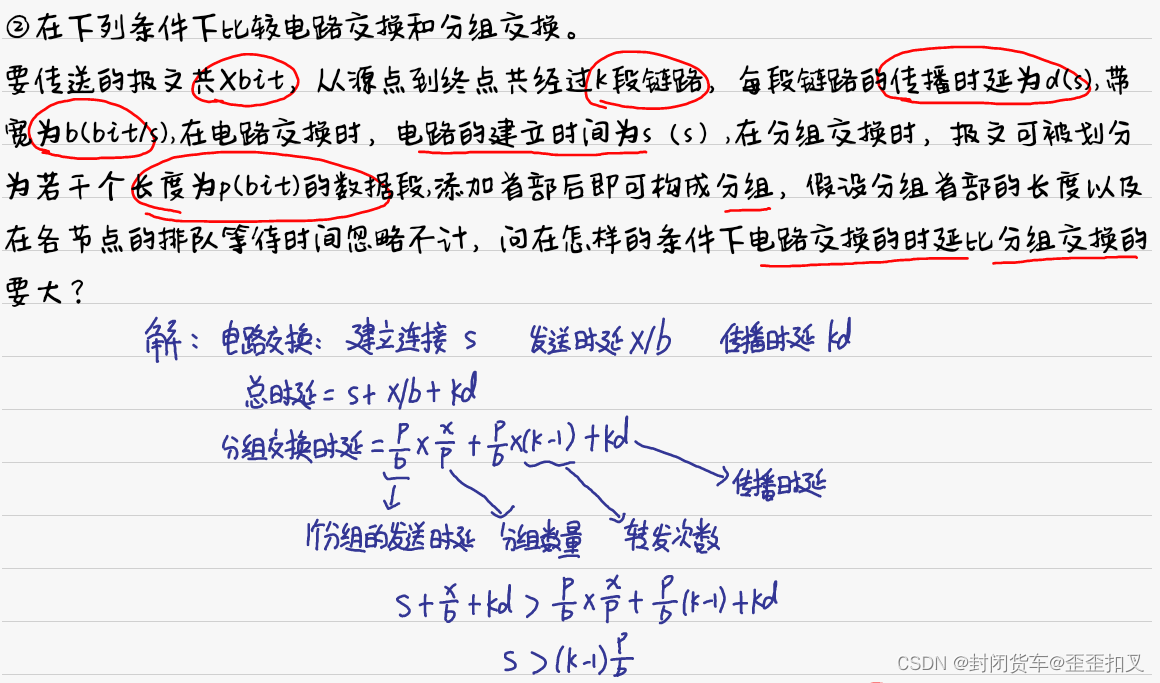 ②在下列条件下比较电路交换和分组交换。
要传送的报文共xbit，从源点到终点共经过k段链路，每段链路的传播时延为d(s),带
宽为b(bit/s),在电路交换时，电路的建立时间为s（s）,在分组交换时，报文可被划分
为若干个长度为p(bit)的数据段,添加首部后即可构成分组，假设分组首部的长度以及
在各节点的排队等待时间忽略不计，问在怎样的条件下电路交换的时延比分组交换的
要大？
解：电路交换：建立连接 s 发送时延 x/b 传播时延 kd
总时延 = s + x/b + kd
分组交换时延 = p/b × x/p + p/b ×(k-1) + kd
传播时延
1个分组的发送时延 分组数量 转发次数
s + x/b + kd > p/b × x/p + p/b (k-1) + kd
s > (k-1) p/b
CSDN @封闭货车@歪歪扣叉